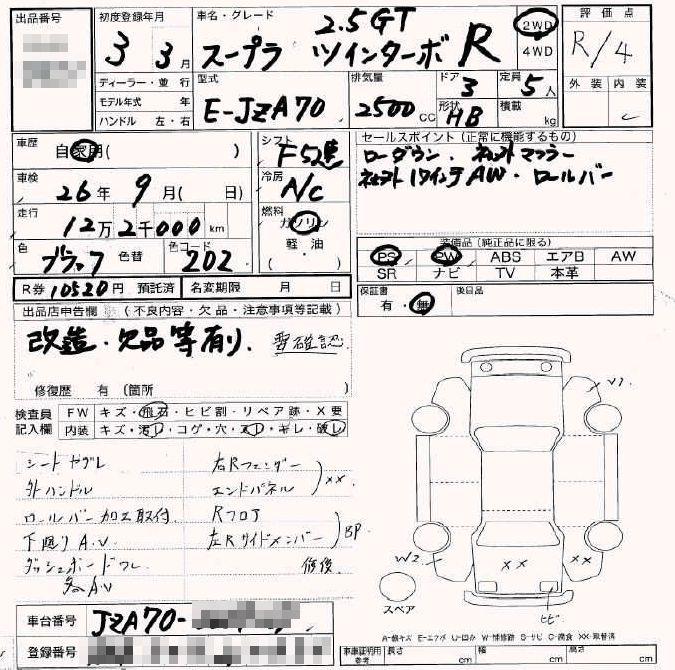 出品番号
初度登録年月
車名・グレード
評価点
3 3月
2.5GT
スープラ ツインターボ R
2WD
4WD
R/4
ディーラー・並行
型式
排気量
ドア
定員
外装 内装
モデル年式 年
E-JZA70
2500cc
3
5人
ハンドル 左・右
形状 HB
積載 kg
C
車歴 自家用( )
シフト F5速
セールスポイント(正常に機能するもの)
車検 26年 9月( 日)
冷房 A/C
ローダウン・社外マフラー
社外17インチAW・ロールバー
走行 12万2千000km
燃料 ガソリン
軽・油
( )
色 ブラック 色替
色コード 202
装備品(純正品に限る)
PS PW ABS エアB AW
SR ナビ TV 本革
R券 10520円 預託済
名変期限 月 日
保証書 有・無
後日品
出品店申告欄 (不良内容・欠品・注意事項等記載)
改造・欠品等有り 要確認
修復歴 有 (箇所
検査員
記入欄
FW キズ・飛石・ヒビ割・リペア跡・X要
内装 キズ・汚レ・コゲ・穴・スレ・キレ・破レ
シートヤブレ
右Rフェンダー
外ハンドル
エンドパネル
××
ロールバー加工取付
Rフロア
下廻りA.V
左Rサイドメンバー
BP
修復
各AV
V1
W2
××
××
ヒビ
スペア
車台番号 JZA70-
登録番号
A-線キズ E-エクボ U-凹み W-補修跡 S-サビ C-腐食 XX-取替済
車庫証明用
参考
長さ cm
幅 cm
高さ cm